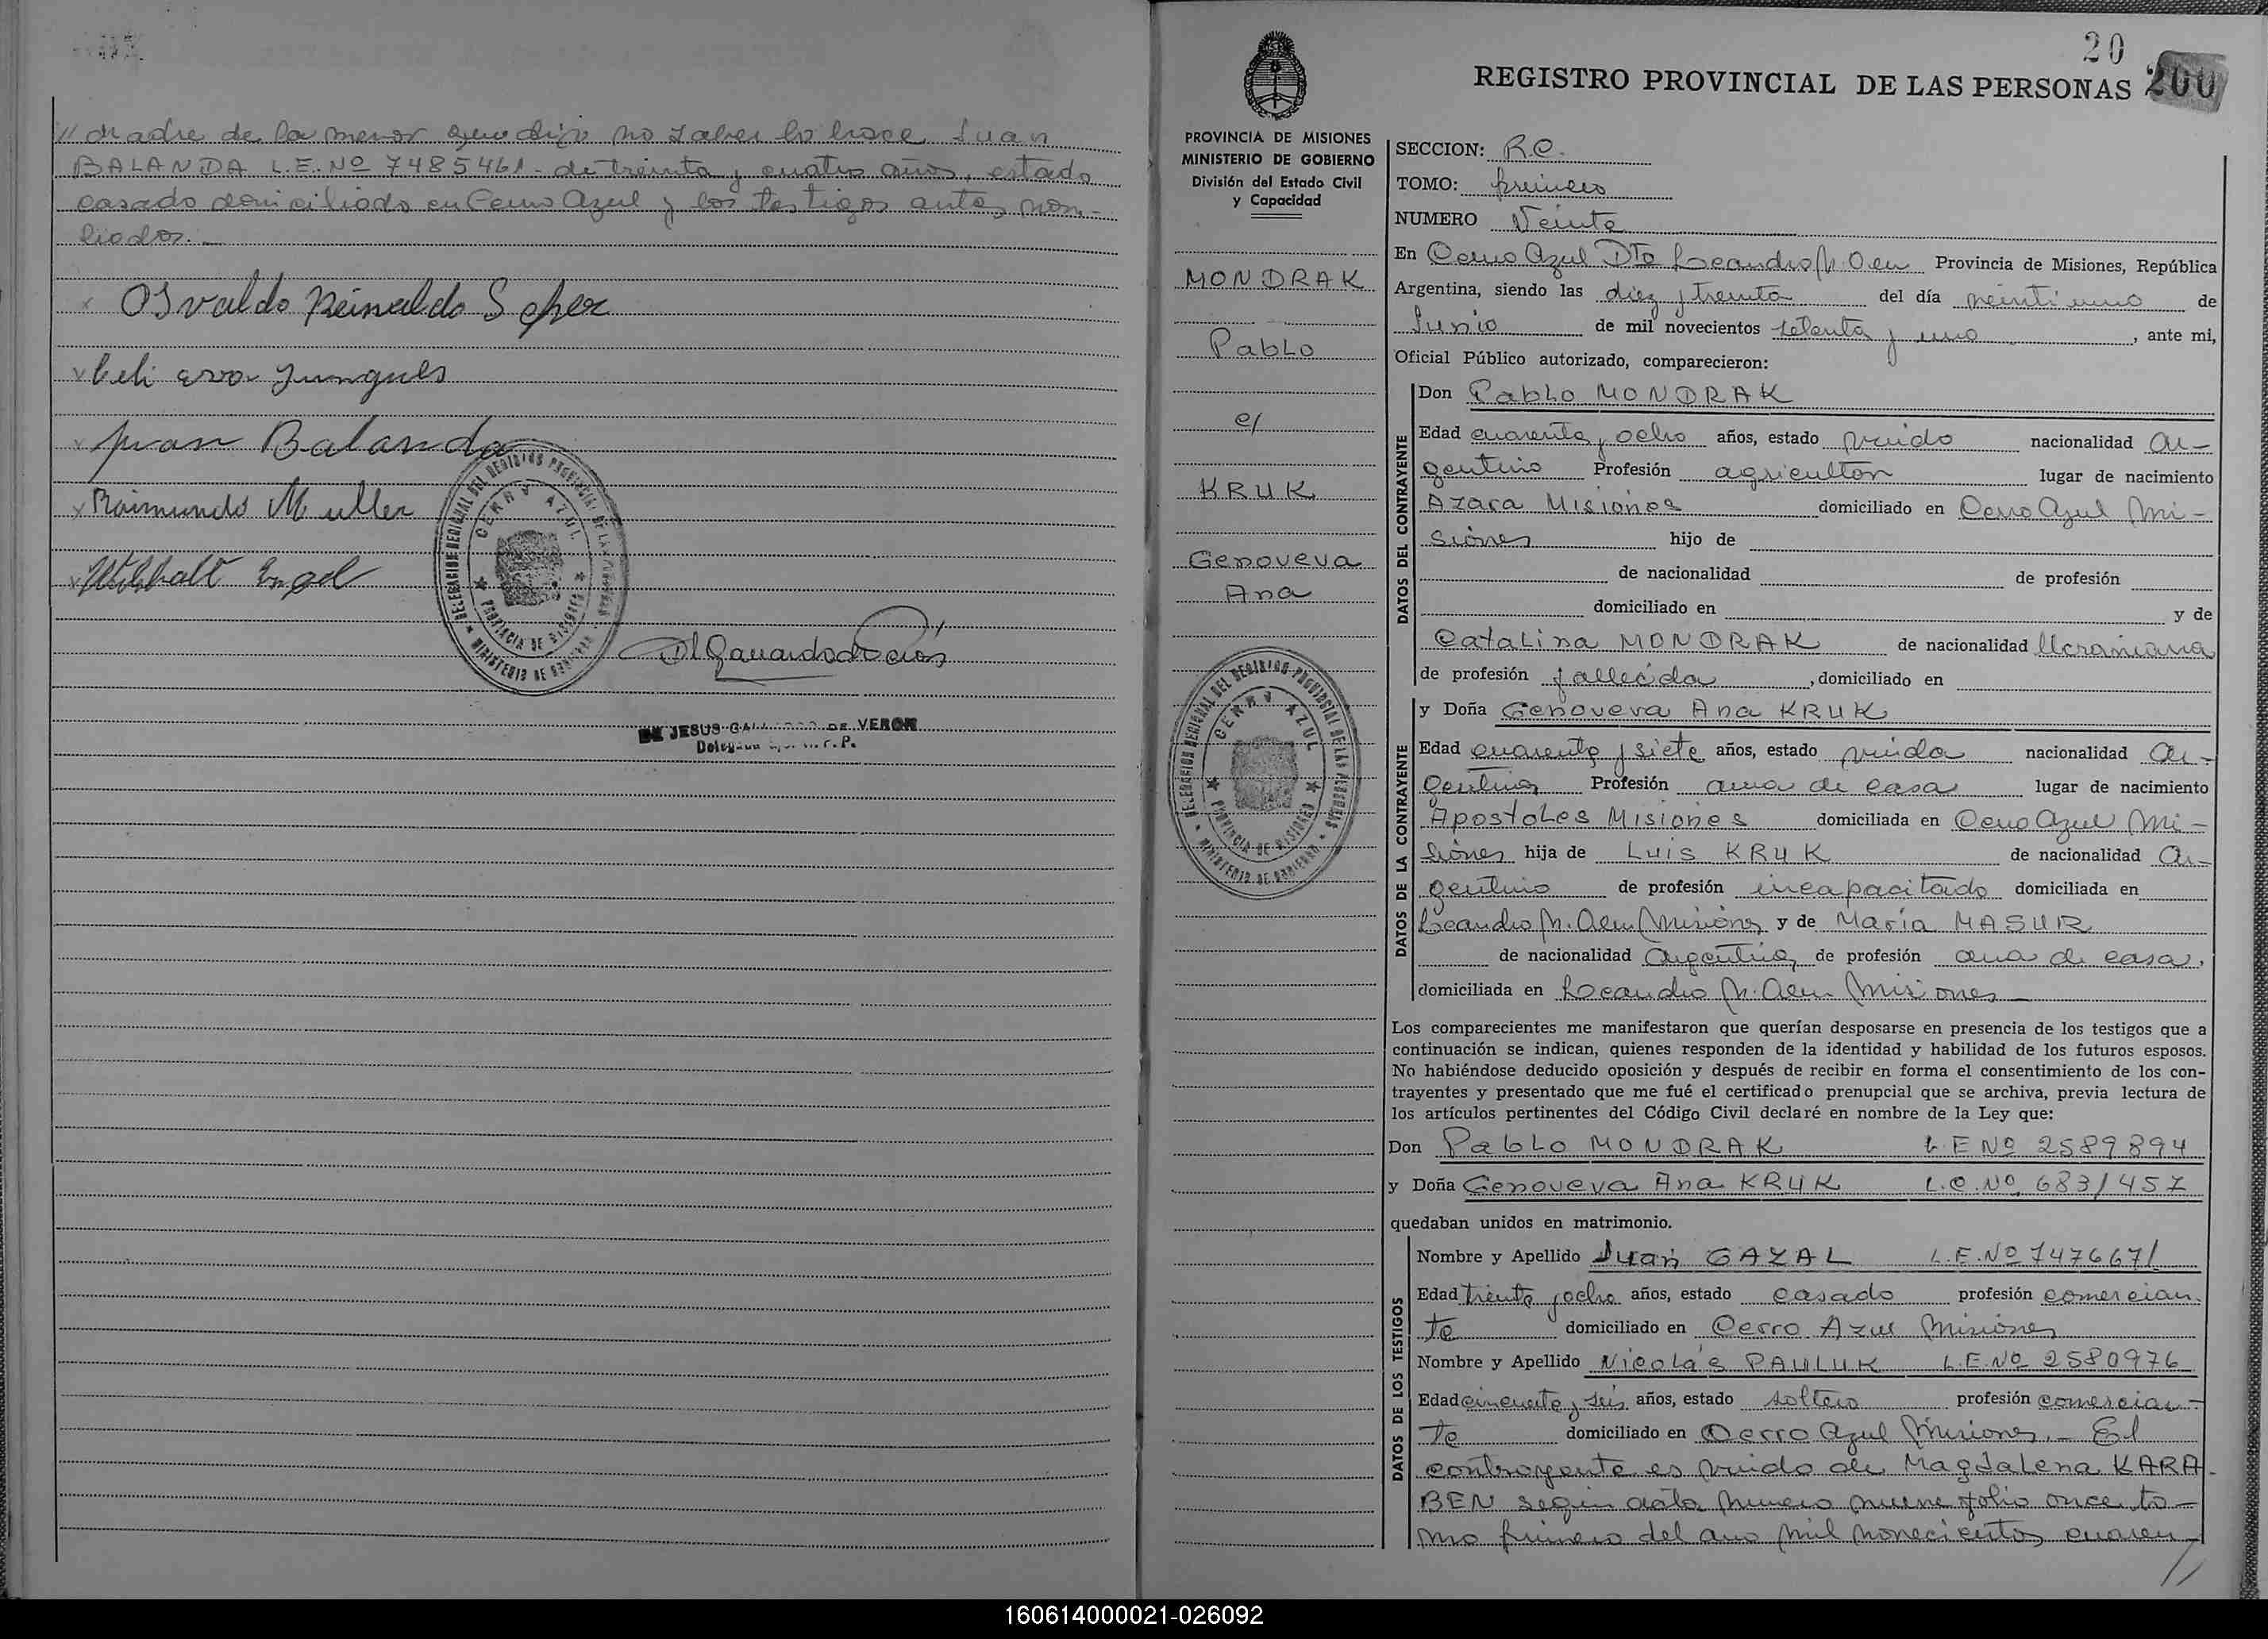 // madre de la menor que dijo no saber lo hace Juan
BALANDA L.E. Nº 7485461 - de treinta y cuatro años, estado
casado domiciliado en Cerro Azul y los testigos antes nom-
brados.-
x Osvaldo Reinaldo Scher
x Eva Jungues
x Juan Balanda
x Raimundo Muller
x Engel
DELEGACION REGIONAL DEL REGISTRO PROVINCIAL DE LAS PERSONAS
CERRO AZUL
PROVINCIA DE MISIONES
MINISTERIO DE GOBIERNO
DE JESUS DE VERON
PROVINCIA DE MISIONES
MINISTERIO DE GOBIERNO
División del Estado Civil
y Capacidad
MONDRAK
Pablo
c/
KRUK
Genoveva
Ana
DELEGACION REGIONAL DEL REGISTRO PROVINCIAL DE LAS PERSONAS
CERRO AZUL
PROVINCIA DE MISIONES
MINISTERIO DE GOBIERNO
20
REGISTRO PROVINCIAL DE LAS PERSONAS 200
SECCION: R.C.
TOMO: primero
NUMERO Veinte
En Cerro Azul Dto Leandro N. Alem Provincia de Misiones, República
Argentina, siendo las diez y treinta del día veintiuno de
Junio de mil novecientos setenta y uno, ante mi,
Oficial Público autorizado, comparecieron:
DATOS DEL CONTRAYENTE
Don Pablo MONDRAK
Edad cuarenta y ocho años, estado viudo nacionalidad ar-
gentino Profesión agricultor lugar de nacimiento
Azara Misiones domiciliado en Cerro Azul Mi-
siones hijo de
de nacionalidad de profesión
domiciliado en y de
Catalina MONDRAK de nacionalidad Ucraniana
de profesión fallecida, domiciliado en
DATOS DE LA CONTRAYENTE
y Doña Genoveva Ana KRUK
Edad cuarenta y siete años, estado viuda nacionalidad ar-
gentina Profesión ama de casa lugar de nacimiento
Apostoles Misiones domiciliada en Cerro Azul Mi-
siones hija de Luis KRUK de nacionalidad Ar-
gentino de profesión incapacitado domiciliada en
Leandro N. Alem Misiones y de María MASUR
de nacionalidad Argentina de profesión ama de casa,
domiciliada en Leandro N. Alem Misiones
Los comparecientes me manifestaron que querían desposarse en presencia de los testigos que a
continuación se indican, quienes responden de la identidad y habilidad de los futuros esposos.
No habiéndose deducido oposición y después de recibir en forma el consentimiento de los con-
trayentes y presentado que me fué el certificado prenupcial que se archiva, previa lectura de
los artículos pertinentes del Código Civil declaré en nombre de la Ley que:
Don Pablo MONDRAK L.E Nº 2589894
y Doña Genoveva Ana KRUK L.C. Nº 6831457
quedaban unidos en matrimonio.
DATOS DE LOS TESTIGOS
Nombre y Apellido Juan GAZAL L.E. Nº 7476671
Edad treinta y ocho años, estado casado profesión comercian-
te domiciliado en Cerro Azul Misiones
Nombre y Apellido Nicolás PAULUK L.E. Nº 2580976
Edad cincuenta y seis años, estado soltero profesión comercian-
te domiciliado en Cerro Azul Misiones.- El
contrayente es viudo de Magdalena KARA-
BEN según acta número nueve folio once to-
mo primero del año mil novecientos cuaren-
//
160614000021-026092